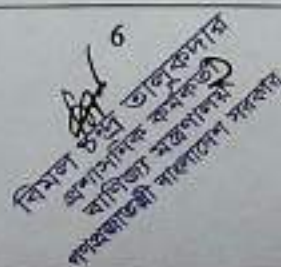 6
বিমল চন্দ্র তালুকদার
প্রশাসনিক কর্মকর্তা
বাণিজ্য মন্ত্রণালয়
গণপ্রজাতন্ত্রী বাংলাদেশ সরকার